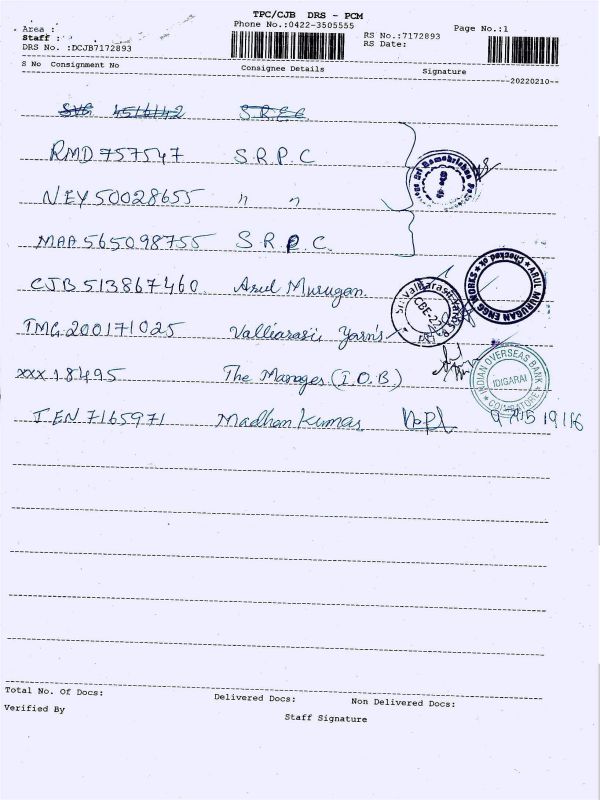 TPC/CJB DRS - PCM
Area : Phone No.:0422-3505555 Page No.:1
Staff : RS No.:7172893
DRS No. :DCJB7172893 RS Date:
S No Consignment No Consignee Details Signature
--20220210--
4516142 SREE
RMD 757547 S.R.P.C
NEY 50028655 " "
MAA 565098755 S.R.P.C.
CJB 513867460 Arul Murugan
TMG 200171025 Valliarasii Yarn's
xxx 18495 The Manager (I.O.B)
JEN 7165971 Madhan Kumar
ARUL MURUGAN ENGG WORKS
INDIAN OVERSEAS BANK
IDIGARAI
COIMBATORE
Total No. Of Docs: Delivered Docs: Non Delivered Docs:
Verified By Staff Signature